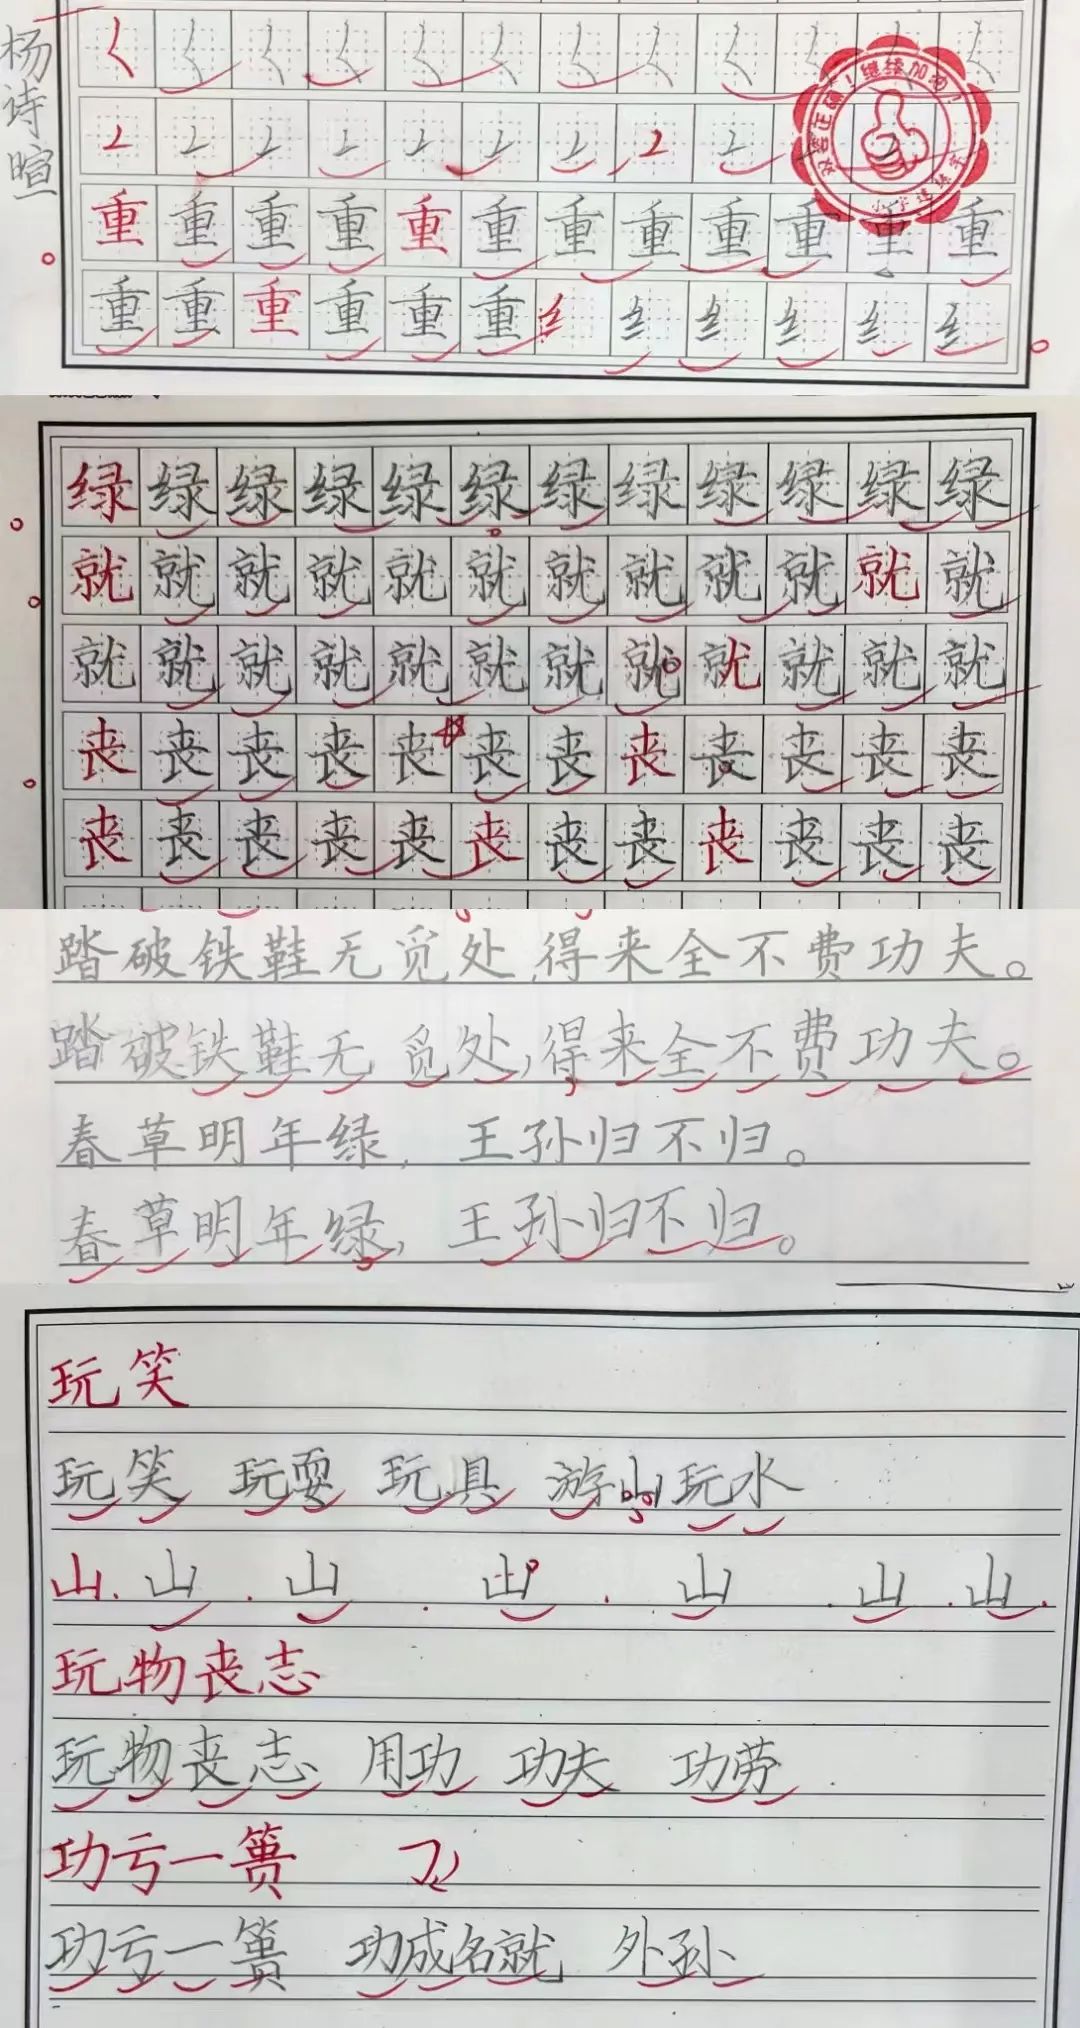 杨诗暄
重重重重重重重重重重重重
重重重重重重纟纟纟纟纟纟
绿绿绿绿绿绿绿绿绿绿绿绿
就就就就就就就就就就就就
就就就就就就就就就就就就
丧丧丧丧丧丧丧丧丧丧丧丧
丧丧丧丧丧丧丧丧丧丧丧丧
踏破铁鞋无觅处,得来全不费功夫。
踏破铁鞋无觅处,得来全不费功夫。
春草明年绿,王孙归不归。
春草明年绿,王孙归不归。
玩笑
玩笑 玩耍 玩具 游山玩水
山.山.山.山.山.山.山.
玩物丧志
玩物丧志 用功 功夫 功劳
功亏一篑
功亏一篑 功成名就 外孙